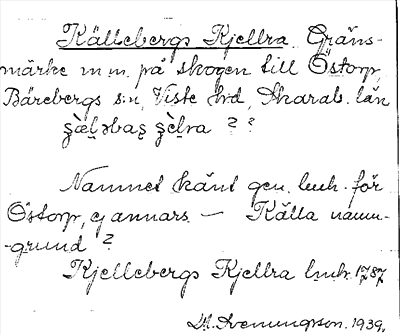 Källebergs Kjellra. Gräns-
märke m m. på skogen till Östorp,
Bärebergs s:n, Viste hrd, Skarab. län
? ?
Namnet känt gen. lmh. för
Östorp, ej annars. — Källa namn-
-grund?
Kjellebergs Kjellra lmh. 1787
1939.